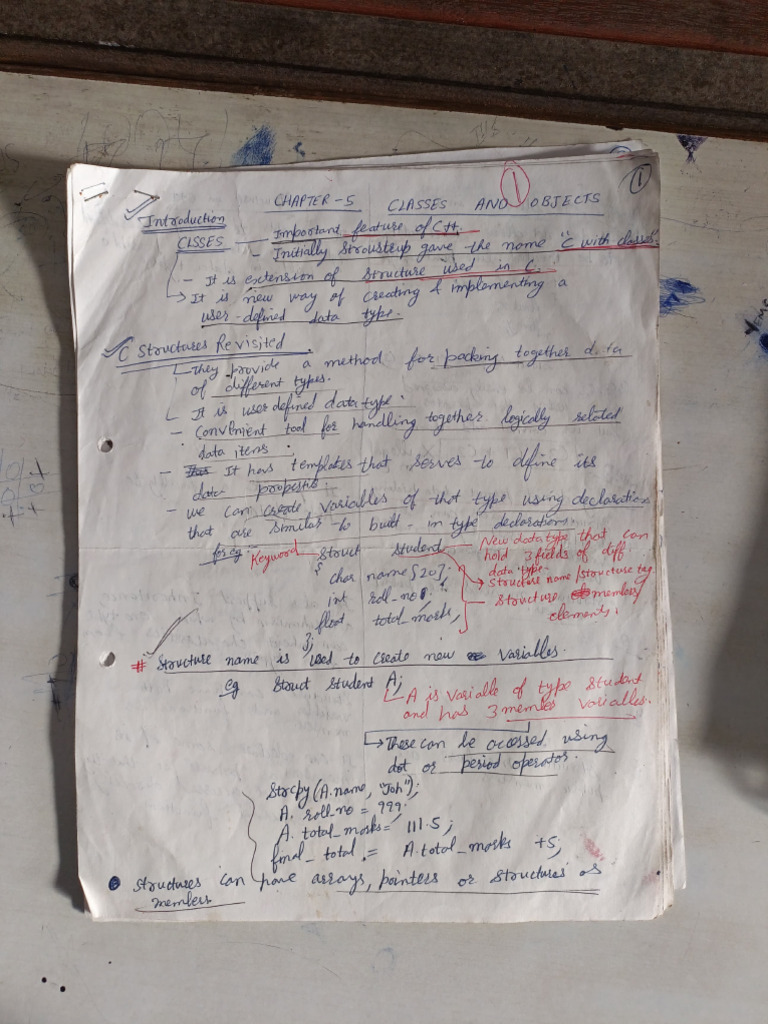 1
1
CHAPTER-5 CLASSES AND OBJECTS
Introduction
CLSSES - Important feature of C++.
- Initially Stroustrup gave the name "C with classes".
- It is extension of structure used in C.
→ It is new way of creating & implementing a
user-defined data type.
C Structures Revisited.
They provide a method for packing together data
of different types.
It is user defined data type.
- Convenient tool for handling together logically related
data items.
- It has templates that serves to define its
data properties.
- we can create variables of that type using declarations
that are similar to built-in type declarations.
for eg:- Keyword - Struct Student - New data type that can
hold 3 fields of diff.
data type.
{
char name[20];
→ Structure name/structure tag
int roll-no;
- Structure members/
elements.
float total_marks;
};
# Structure name is used to create new variables.
eg Struct Student A;
A is variable of type student
and has 3 member variables.
→ These can be accessed using
dot or period operator.
Strcpy(A.name, "Joh");
A. roll-no = 999.
A. total_marks = 111.5;
final_total = A.total_marks +5;
Structures can have arrays, pointers or structures as
members